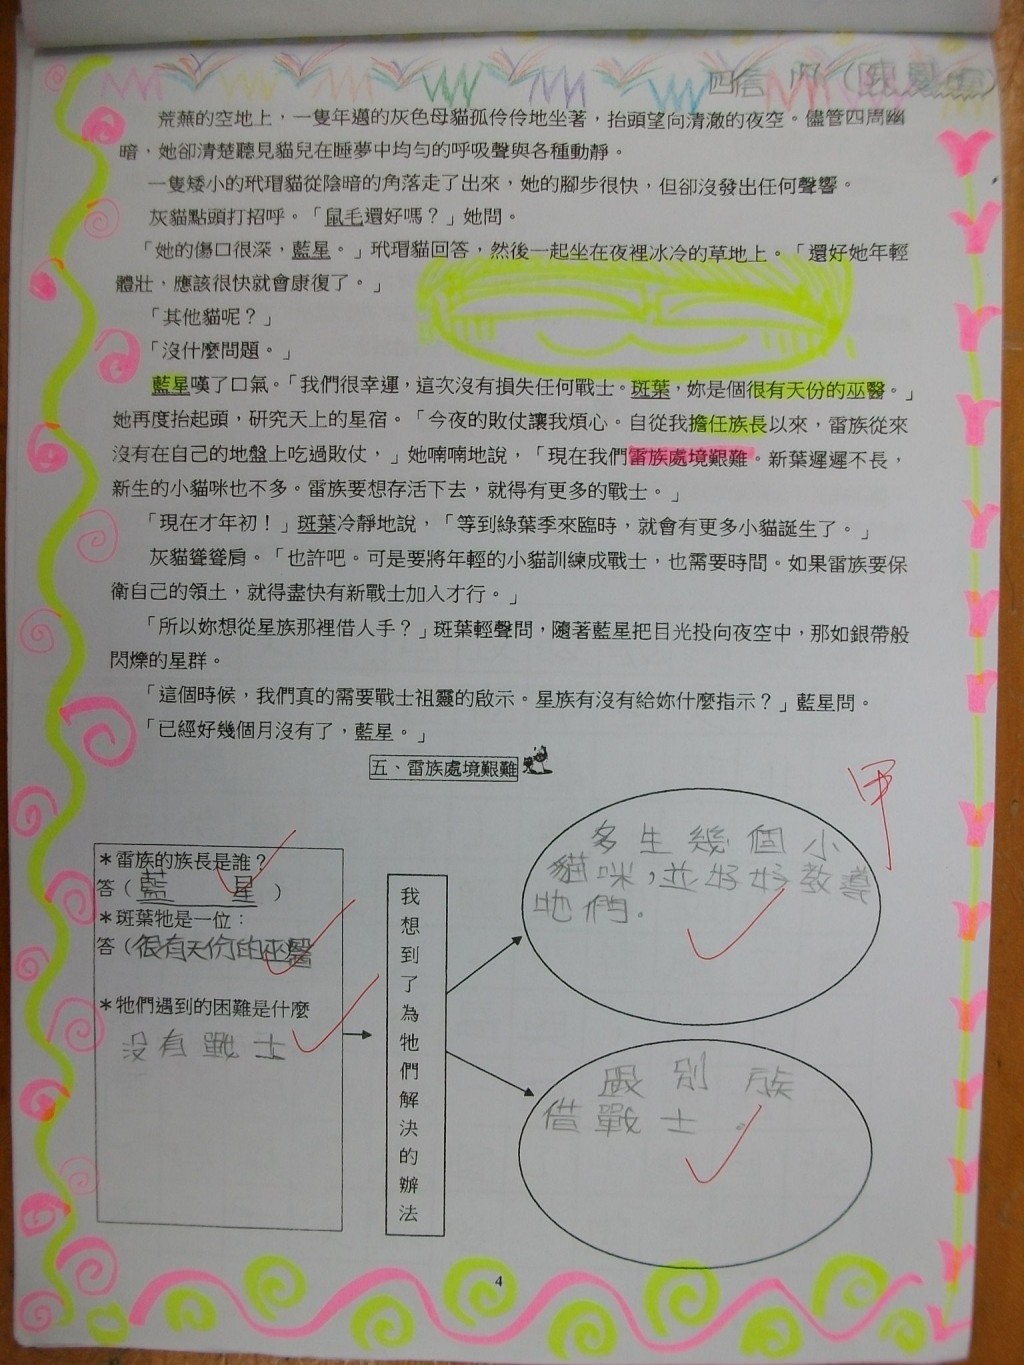 四信 17
荒蕪的空地上，一隻年邁的灰色母貓孤伶伶地坐著，抬頭望向清澈的夜空。儘管四周幽
暗，她卻清楚聽見貓兒在睡夢中均勻的呼吸聲與各種動靜。
一隻矮小的玳瑁貓從陰暗的角落走了出來，她的腳步很快，但卻沒發出任何聲響。
灰貓點頭打招呼。「鼠毛還好嗎？」她問。
「她的傷口很深，藍星。」玳瑁貓回答，然後一起坐在夜裡冰冷的草地上。「還好她年輕
體壯，應該很快就會康復了。」
「其他貓呢？」
「沒什麼問題。」
藍星嘆了口氣。「我們很幸運，這次沒有損失任何戰士。斑葉，妳是個很有天份的巫醫。」
她再度抬起頭，研究天上的星宿。「今夜的敗仗讓我煩心。自從我擔任族長以來，雷族從來
沒有在自己的地盤上吃過敗仗，」她喃喃地說，「現在我們雷族處境艱難。新葉遲遲不長，
新生的小貓咪也不多。雷族要想存活下去，就得有更多的戰士。」
「現在才年初！」斑葉冷靜地說，「等到綠葉季來臨時，就會有更多小貓誕生了。」
灰貓聳聳肩。「也許吧。可是要將年輕的小貓訓練成戰士，也需要時間。如果雷族要保
衛自己的領土，就得盡快有新戰士加入才行。」
「所以妳想從星族那裡借人手？」斑葉輕聲問，隨著藍星把目光投向夜空中，那如銀帶般
閃爍的星群。
「這個時候，我們真的需要戰士祖靈的啟示。星族有沒有給妳什麼指示？」藍星問。
「已經好幾個月沒有了，藍星。」
五、雷族處境艱難
甲
＊雷族的族長是誰？
答（藍 星）
＊斑葉牠是一位：
答（很有天份的巫醫
＊牠們遇到的困難是什麼
沒有戰士
我想到了為牠們解決的辦法
多生幾個小
貓咪，並好好教導
牠們.
跟別族
借戰士。
4